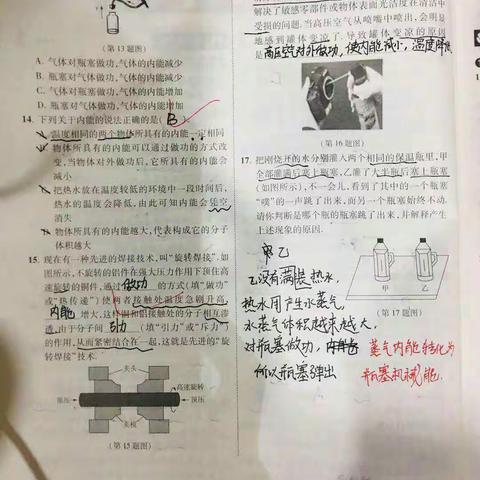 (第13题图)
A. 气体对瓶塞做功,气体的内能减少
B. 瓶塞对气体做功,气体的内能减少
C. 气体对瓶塞做功,气体的内能增加
D. 瓶塞对气体做功,气体的内能增加
14. 下列关于内能的说法正确的是( B )
A. 温度相同的两个物体所具有的内能一定相同
物体所具有的内能可以通过做功的方式改
变,当物体对外做功后,它所具有的内能会
减小
把热水放在温度较低的环境中一段时间后,
热水的温度会降低,由此可知内能会凭空
消失
物体所具有的内能越大,代表构成它的分子
体积越大
15. 现在有一种先进的焊接技术,叫“旋转焊接”.如
图所示,不旋转的铝件在强大压力作用下顶住高
速旋转的铜件,通过 做功 的方式(填“做功”
或“热传递”)使两者接触处温度急剧升高,
内能 增大,这样铜和铝接触处的分子相互渗
透,由于分子间 引力 (填“引力”或“斥力”)
的作用,从而紧密结合在一起,这就是先进的“旋
转焊接”技术.
夹头
高速旋转
顶压
顶压
夹板
(第15题图)
解决了敏感零部件或物体表面光洁度在清洁中
受损的问题.当高压空气从喷嘴中喷出,会明显
地感到罐体变凉了.导致罐体变凉的原因
是高压空气对外做功,使内能减小,温度降低
(第16题图)
17. 把刚烧开的水分别灌入两个相同的保温瓶里,甲
全部灌满后塞上瓶塞,乙灌了大半瓶后塞上瓶塞
(如图所示),不一会儿,看到了其中的一个瓶塞
“噗”的一声跳了出来,而另一个瓶塞始终不动.
请你判断是哪个瓶的瓶塞跳了出来,并解释产生
上述现象的原因.
乙
乙没有满装热水,
热水用产生水蒸气,
水蒸气体积越来越大,
对瓶塞做功,
蒸气内能转化为
所以瓶塞弹出
瓶塞机械能.
甲
乙
(第17题图)